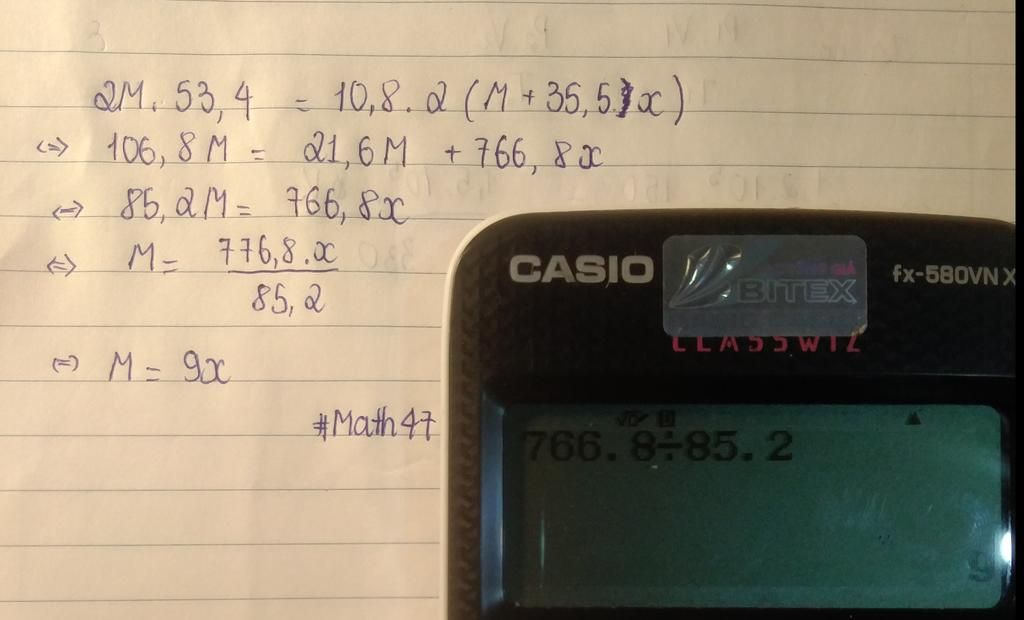 2M. 53,4 = 10,8. 2 (M + 35,5 x)
<=> 106,8M = 21,6M + 766,8x
<=> 85,2M = 766,8x
<=> M = 776,8.x
85,2
=> M = 9x
#Math47
CASIO
BITEX
fx-580VN X
CLASSWIZ
766.8÷85.2
9